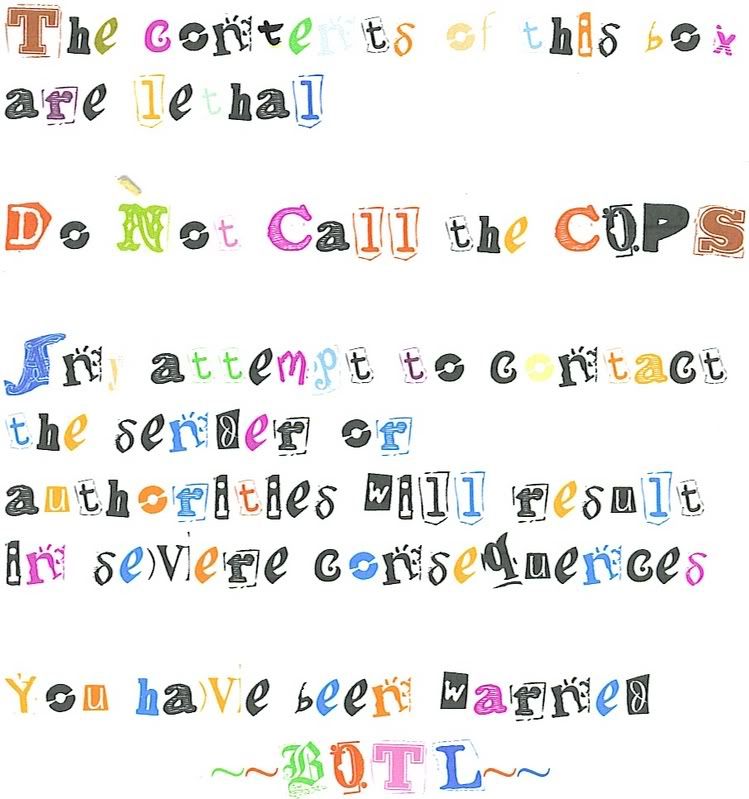 The contents of this box
are lethal
Do Not Call the COPS
Any attempt to contact
the sender or
authorities will result
in seVere consequences
You haVe been warned
~~BOTL~~